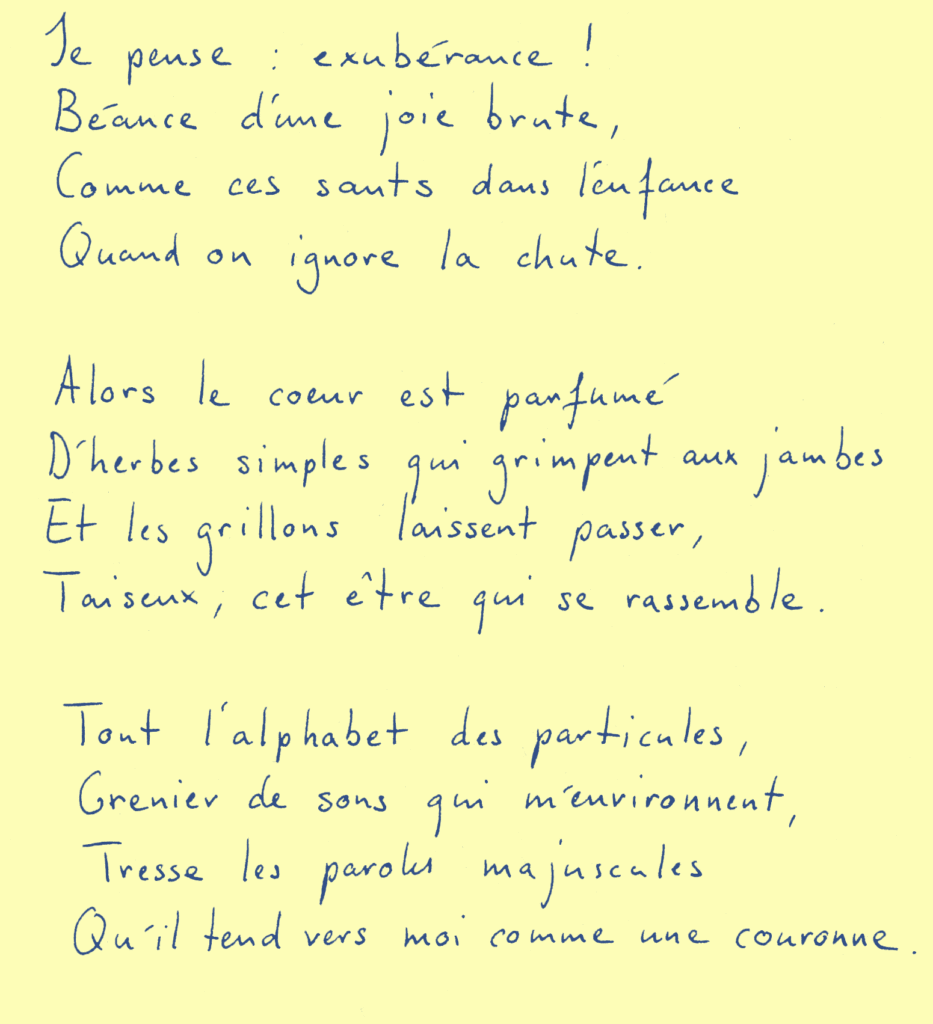 Je pense : exubérance !
Béance d'une joie brute,
Comme ces sauts dans l'enfance
Quand on ignore la chute.
Alors le coeur est parfumé
D'herbes simples qui grimpent aux jambes
Et les grillons laissent passer,
Taiseux, cet être qui se rassemble.
Tout l'alphabet des particules,
Grenier de sons qui m'environnent,
Tresse les paroles majuscules
Qu'il tend vers moi comme une couronne.